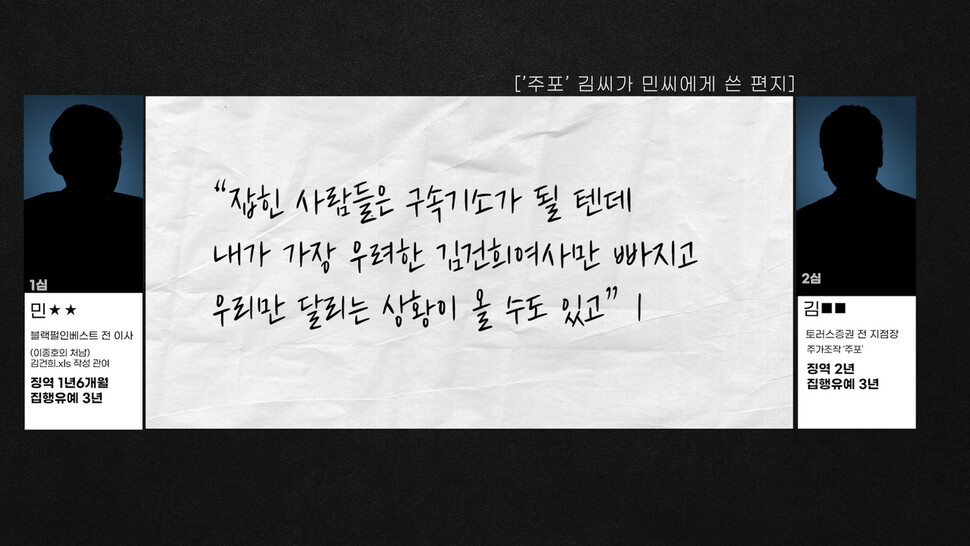 ['주포' 김씨가 민씨에게 쓴 편지]
1심
민★★
블랙펄인베스트 전 이사
(이종호의 처남)
김건희.xls 작성 관여
징역 1년6개월
집행유예 3년
“잡힌 사람들은 구속기소가 될 텐데
내가 가장 우려한 김건희여사만 빠지고
우리만 달리는 상황이 올 수도 있고” |
2심
김■■
토러스증권 전 지점장
주가조작 '주포'
징역 2년
집행유예 3년